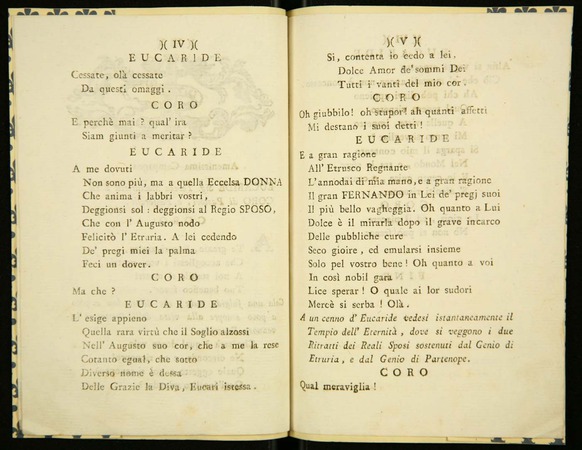 )( IV )(
EUCARIDE
Cessate, olà cessate
Da questi omaggi.
CORO
E perchè mai? qual' ira
Siam giunti a meritar?
EUCARIDE
A me dovuti
Non sono più, ma a quella Eccelsa DONNA
Che anima i labbri vostri,
Deggionsi sol: deggionsi al Regio SPOSO,
Che con l' Augusto nodo
Felicitò l' Etruria. A lei cedendo
De' pregi miei la palma
Feci un dover.
CORO
Ma che?
EUCARIDE
L' esige appieno
Quella rara virtù che il Soglio alzossi
Nell' Augusto suo cor, che a me la rese
Cotanto egual, che sotto
Diverso nome è dessa
Delle Grazie la Diva, Eucari istessa.
)( V )(
Si, contenta io cedo a lei.
Dolce Amor de' sommi Dei
Tutti i vanti del mio cor.
CORO
Oh giubbilo! oh stupor! ah quanti affetti
Mi destano i suoi detti!
EUCARIDE
E a gran ragione
All' Etrusco Regnante
L'annodai di mia mano, e a gran ragione
Il gran FERNANDO in Lei de' pregj suoi
Il più bello vagheggia. Oh quanto a Lui
Dolce è il mirarla dopo il grave incarco
Delle pubbliche cure
Seco gioire, ed emularsi insieme
Solo pel vostro bene! Oh quanto a voi
In così nobil gara
Lice sperar! O quale ai lor sudori
Mercè si serba! Olà.
A un cenno d' Eucaride vedesi istantaneamente il
Tempio dell' Eternità, dove si veggono i due
Ritratti dei Reali Sposi sostenuti dal Genio di
Etruria, e dal Genio di Partenope.
CORO
Qual meraviglia!